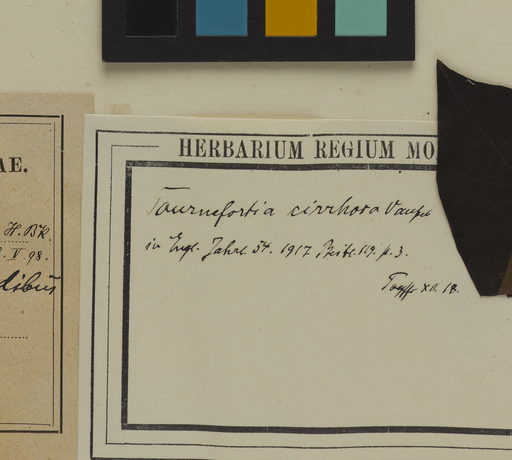 AE.
H. Bk.
V 98.
dibus
HERBARIUM REGIUM MO
Tournefortia cirrhosa Vaupel
in Engl. Jahrb. 54. 1917 Beibl. 119. p. 3.
XII. 18.